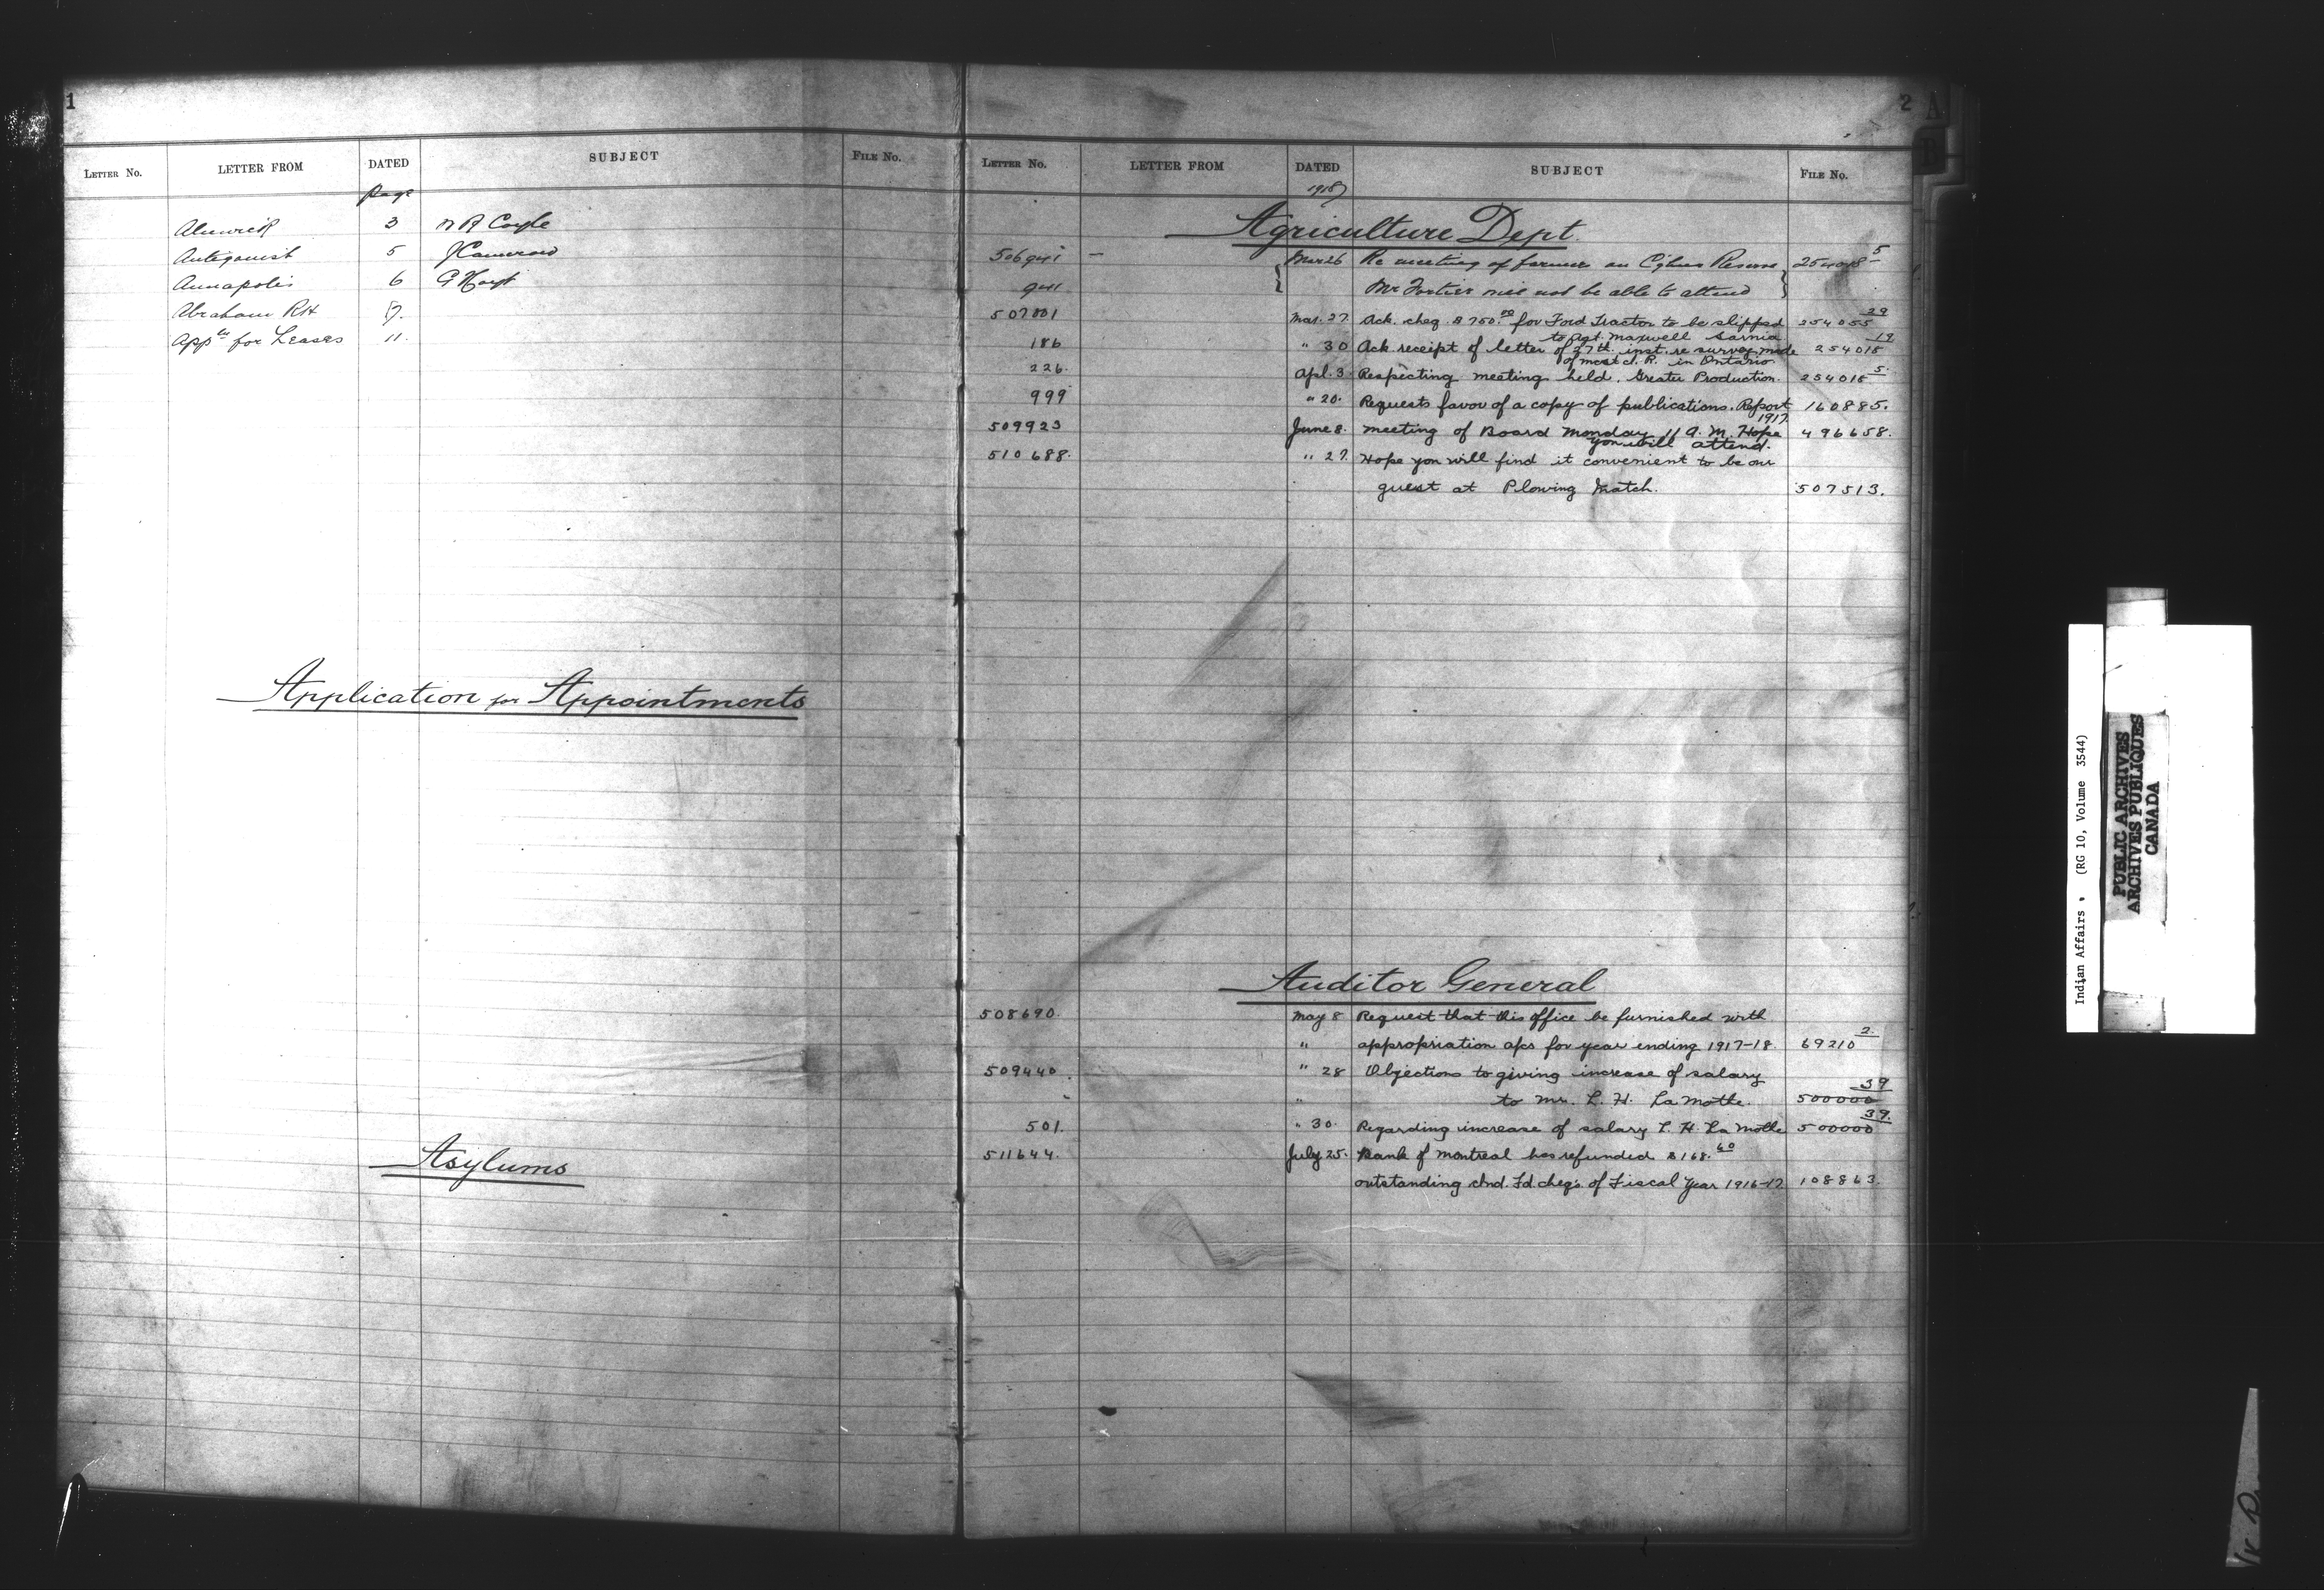 1
LETTER No. LETTER FROM DATED SUBJECT FILE No.
Page
Alnwick 3 R Coyle
Antigonish 5 J Cameron
Annapolis 6 G Hoyt
Abraham RH 7.
App for Leases 11.
Application for Appointments
Asylums
2
A
B
LETTER No. LETTER FROM DATED SUBJECT FILE No.
1918
Agriculture Dept.
Mar 26 Re meeting of farmers on Reserve 5
Mr Fortier will not be able to attend
507001 Mar. 27. Ack. cheq. $750.00 for Ford Tractor to be shipped 254055 29
to Agt. Maxwell Sarnia
186 " 30 Ack receipt of letter of 27th. inst. re survey made 254015 19
of most I. R. in Ontario
226. Apl. 3. Respecting meeting held. Greater Production. 254015 5.
999 " 20. Requests favor of a copy of publications. Report 160885.
1917.
509923 June 8. Meeting of Board Monday 11 A. M. Hope 496658.
you will attend.
510688. " 27. Hope you will find it convenient to be our
guest at Plowing Match. 507513.
Auditor General
508690. May 8 Request that this office be furnished with
" appropriation a/cs for year ending 1917-18. 69210 2.
509440. " 28 Objections to giving increase of salary
" to Mr. L. H. LaMothe. 500000 39
501. " 30. Regarding increase of salary L. H. La Mothe 500000 39.
511644. July 25. Bank of Montreal has refunded $168.60
outstanding Ind. Fd. cheq's of Fiscal Year 1916-17 108863.
Indian Affairs. (RG 10, Volume 3544)
PUBLIC ARCHIVES
ARCHIVES PUBLIQUES
CANADA